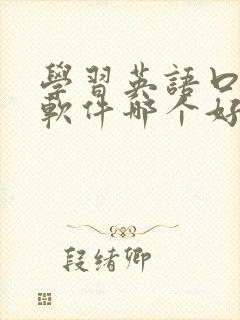 學習英語口
軟件哪个好
段绪卿